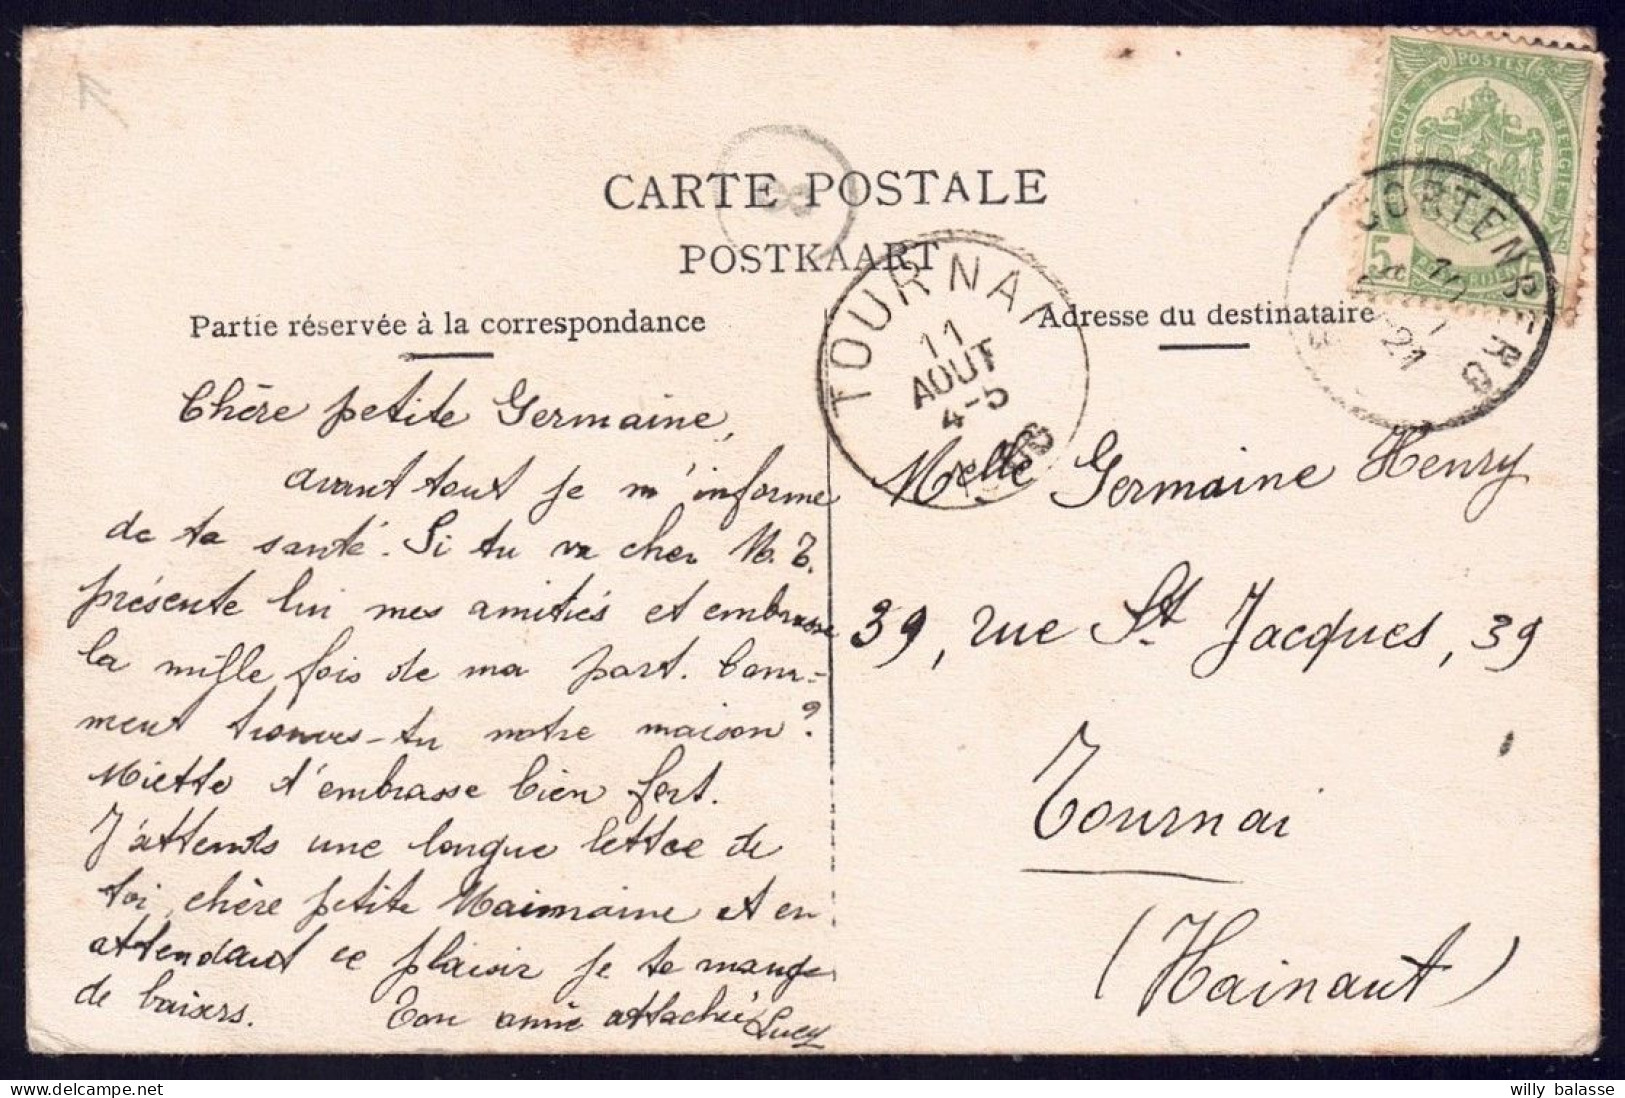 CARTE POSTALE
POSTKAART
Partie réservée à la correspondance
Adresse du destinataire
POSTES
BELGIE
5
TOURNAI
11
AOUT
4-5
8
Chère petite Germaine,
avant tout je m'informe
de ta santé. Si tu va cher M. T.
présente lui mes amitiés et embrasse
la mille fois de ma part. Com-
ment trouves-tu notre maison?
Miette t'embrasse bien fort.
J'attends une longue lettre de
toi, chère petite Maimaine et en
attendant ce plaisir je te mange
de baisers. Ton amie attachée Lucy
Melle Germaine Henry
39, rue St Jacques, 39
Tournai
(Hainaut)
willy balasse